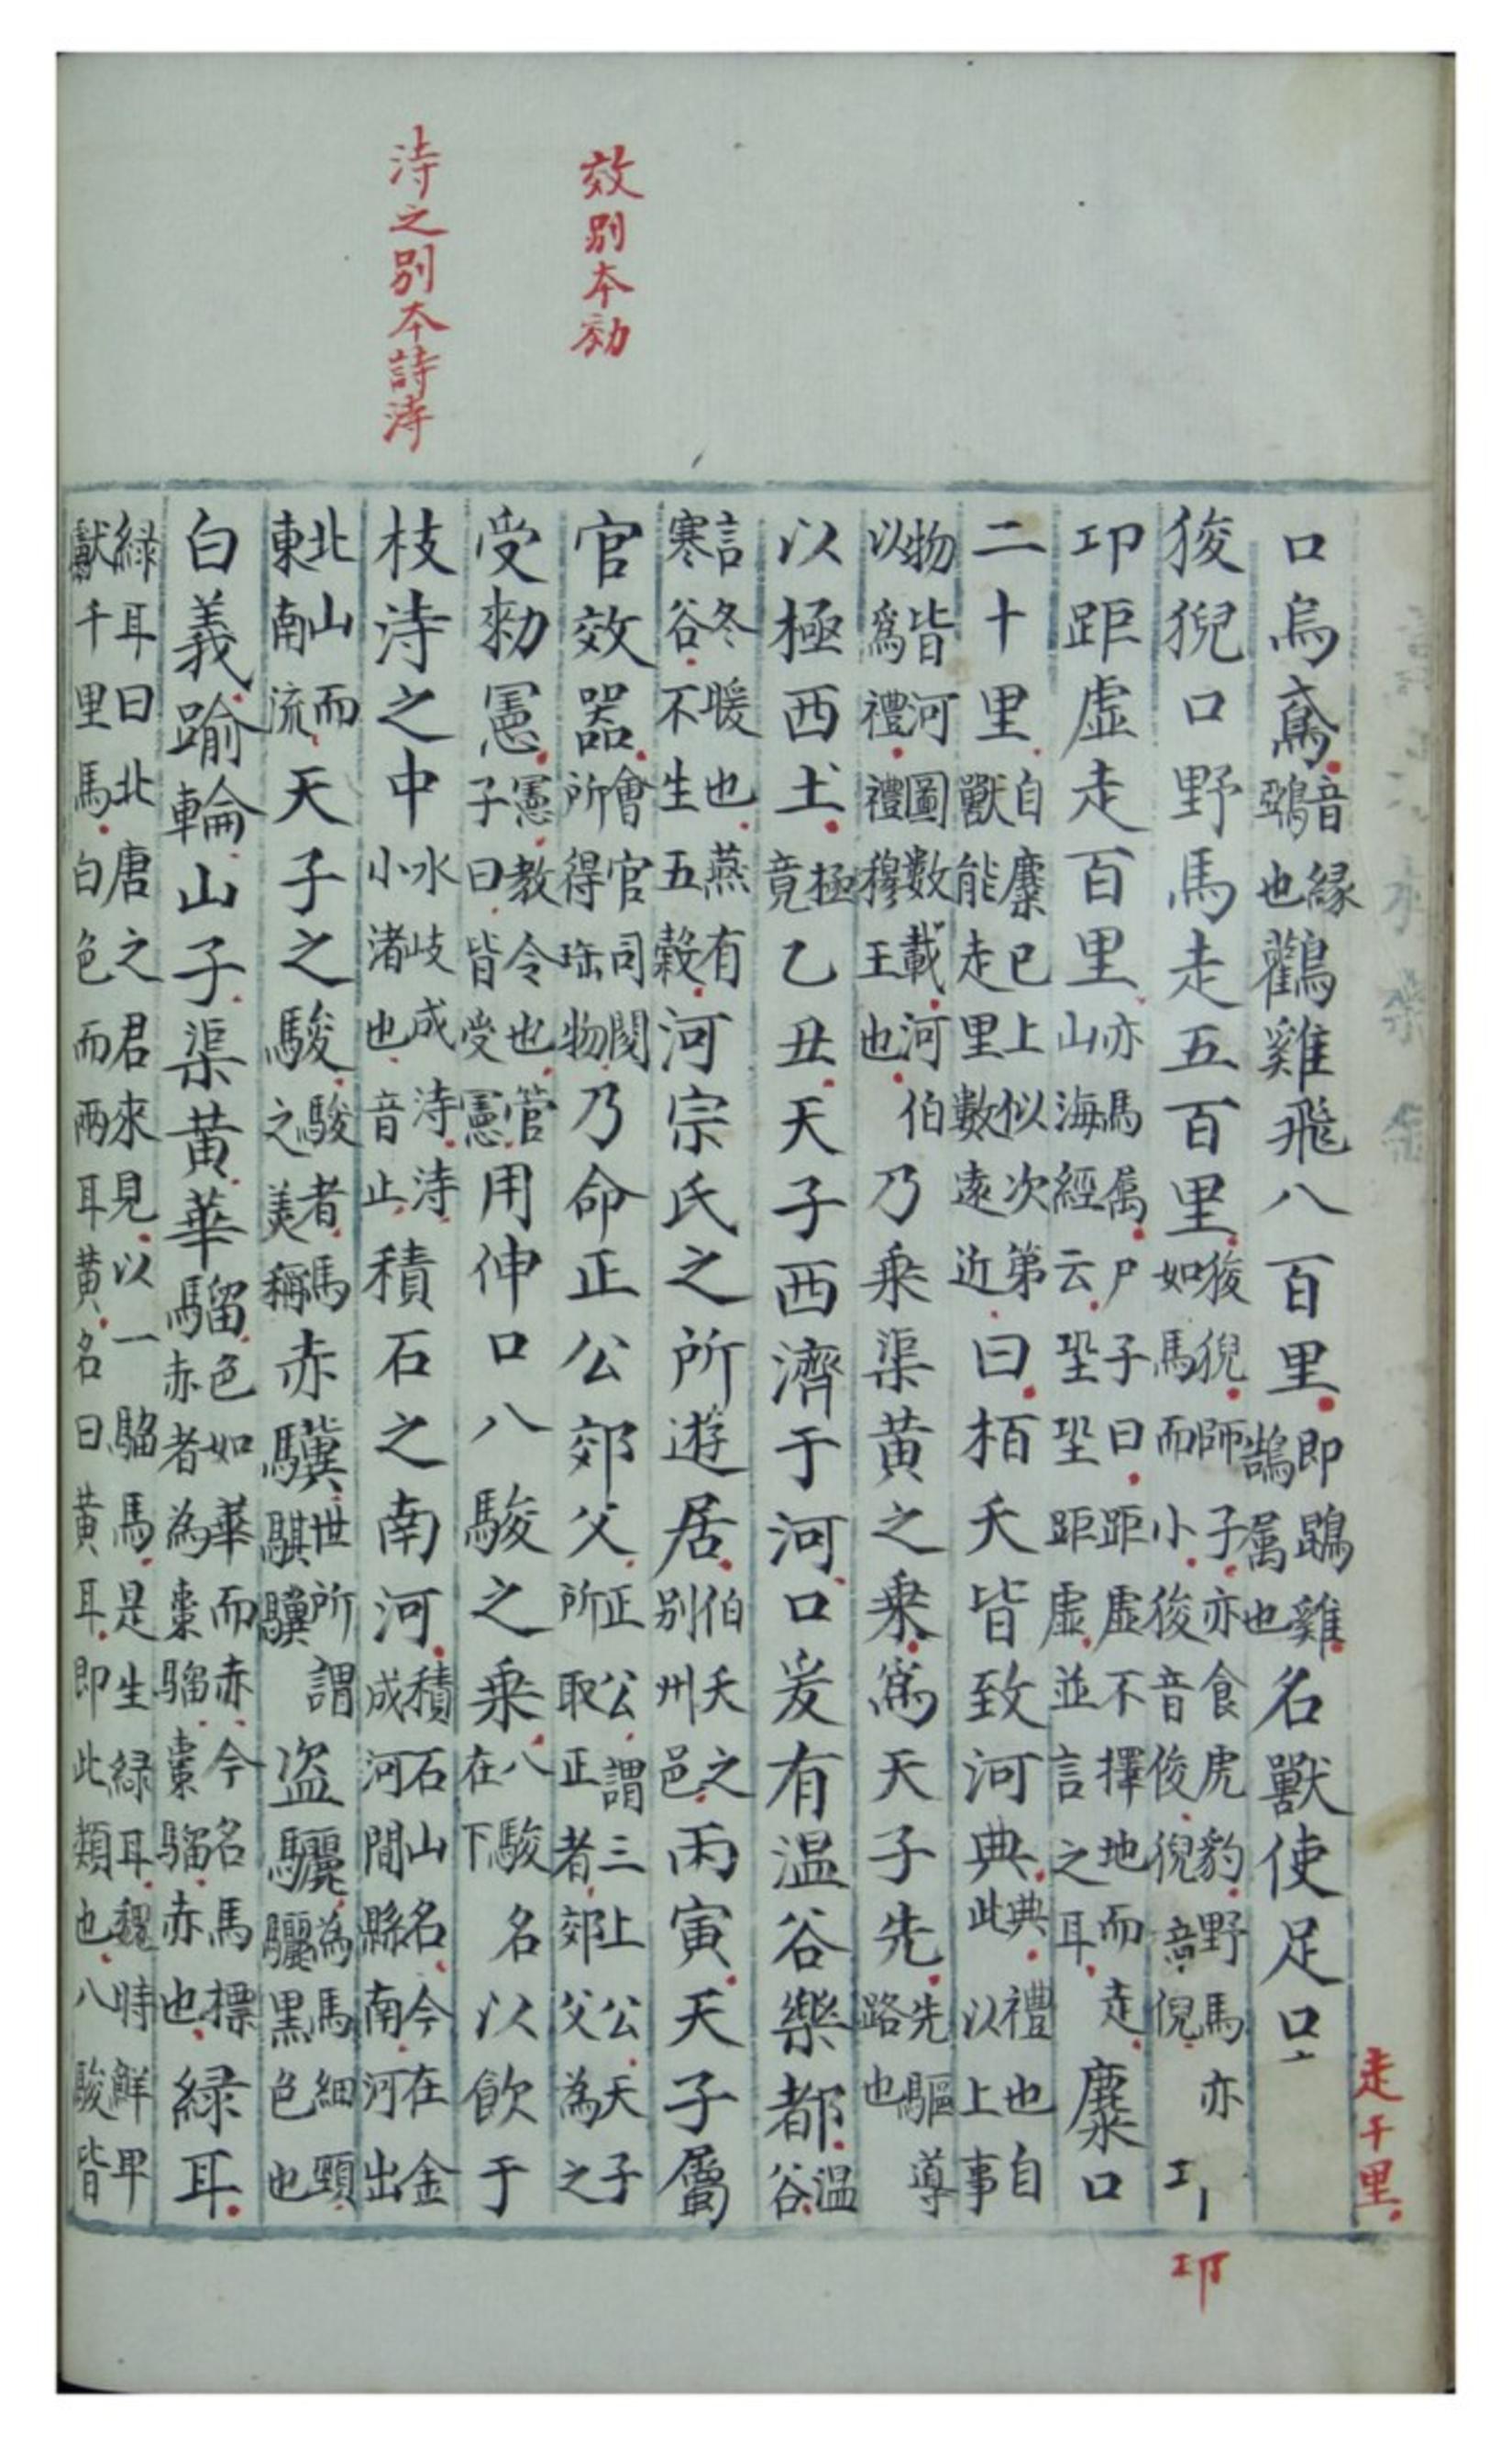 效別本効
洔之別本詩洔
口烏鳶音緣鵄也鸛雞飛八百里即鵾雞鵠属也名獸使足口
走千里
狻猊口野馬走五百里狻猊師子亦食虎豹野馬亦如馬而小狻音俊猊音倪
卭
卭距虛走百里亦馬属尸子曰距虛不擇地而走山海經云蛩蛩距虛並言之耳麋口
二十里自麋已上似次第獸能走里數遠近曰栢夭皆致河典典禮也自此以上事
物皆河圖數載河伯以爲禮禮穆王也乃乘渠黃之乘爲天子先先驅導路也
以極西土極竟乙丑天子西濟于河口爰有温谷樂都温谷
言冬暖也燕有寒谷不生五穀河宗氏之所遊居伯夭之別州邑丙寅天子屬
官效器會官司閱所得珤物乃命正公郊父正公謂三上公天子所取正者郊父為之
受勑憲憲教令也管子曰皆受憲用伸口八駿之乘八駿名在下以飲于
枝洔之中水岐成洔洔小渚也音止積石之南河積石山名今在金成河間縣南河出
北山而東南流天子之駿駿者馬之美稱赤驥世所謂騏驥盜驪為馬細頸驪黑色也
白義踰輪山子渠黃華騮色如華而赤今名馬標赤者為棗騮棗騮赤也緑耳
緑耳曰北唐之君來見以一騮馬是生緑耳魏時鮮卑獻千里馬白色而兩耳黃名曰黃耳即此類也八駿皆